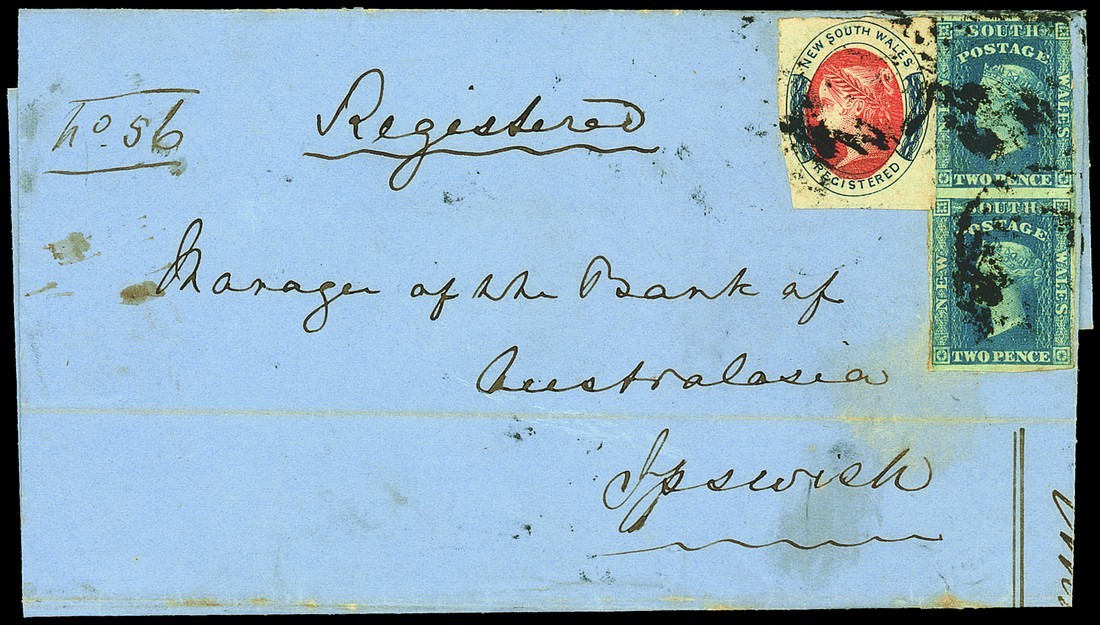 No. 56
Registered
NEW SOUTH WALES
REGISTERED
SOUTH
POSTAGE
WALES
TWO PENCE
SOUTH
POSTAGE
NEW
WALES
TWO PENCE
Manager of the Bank of
Australasia
Ipswich